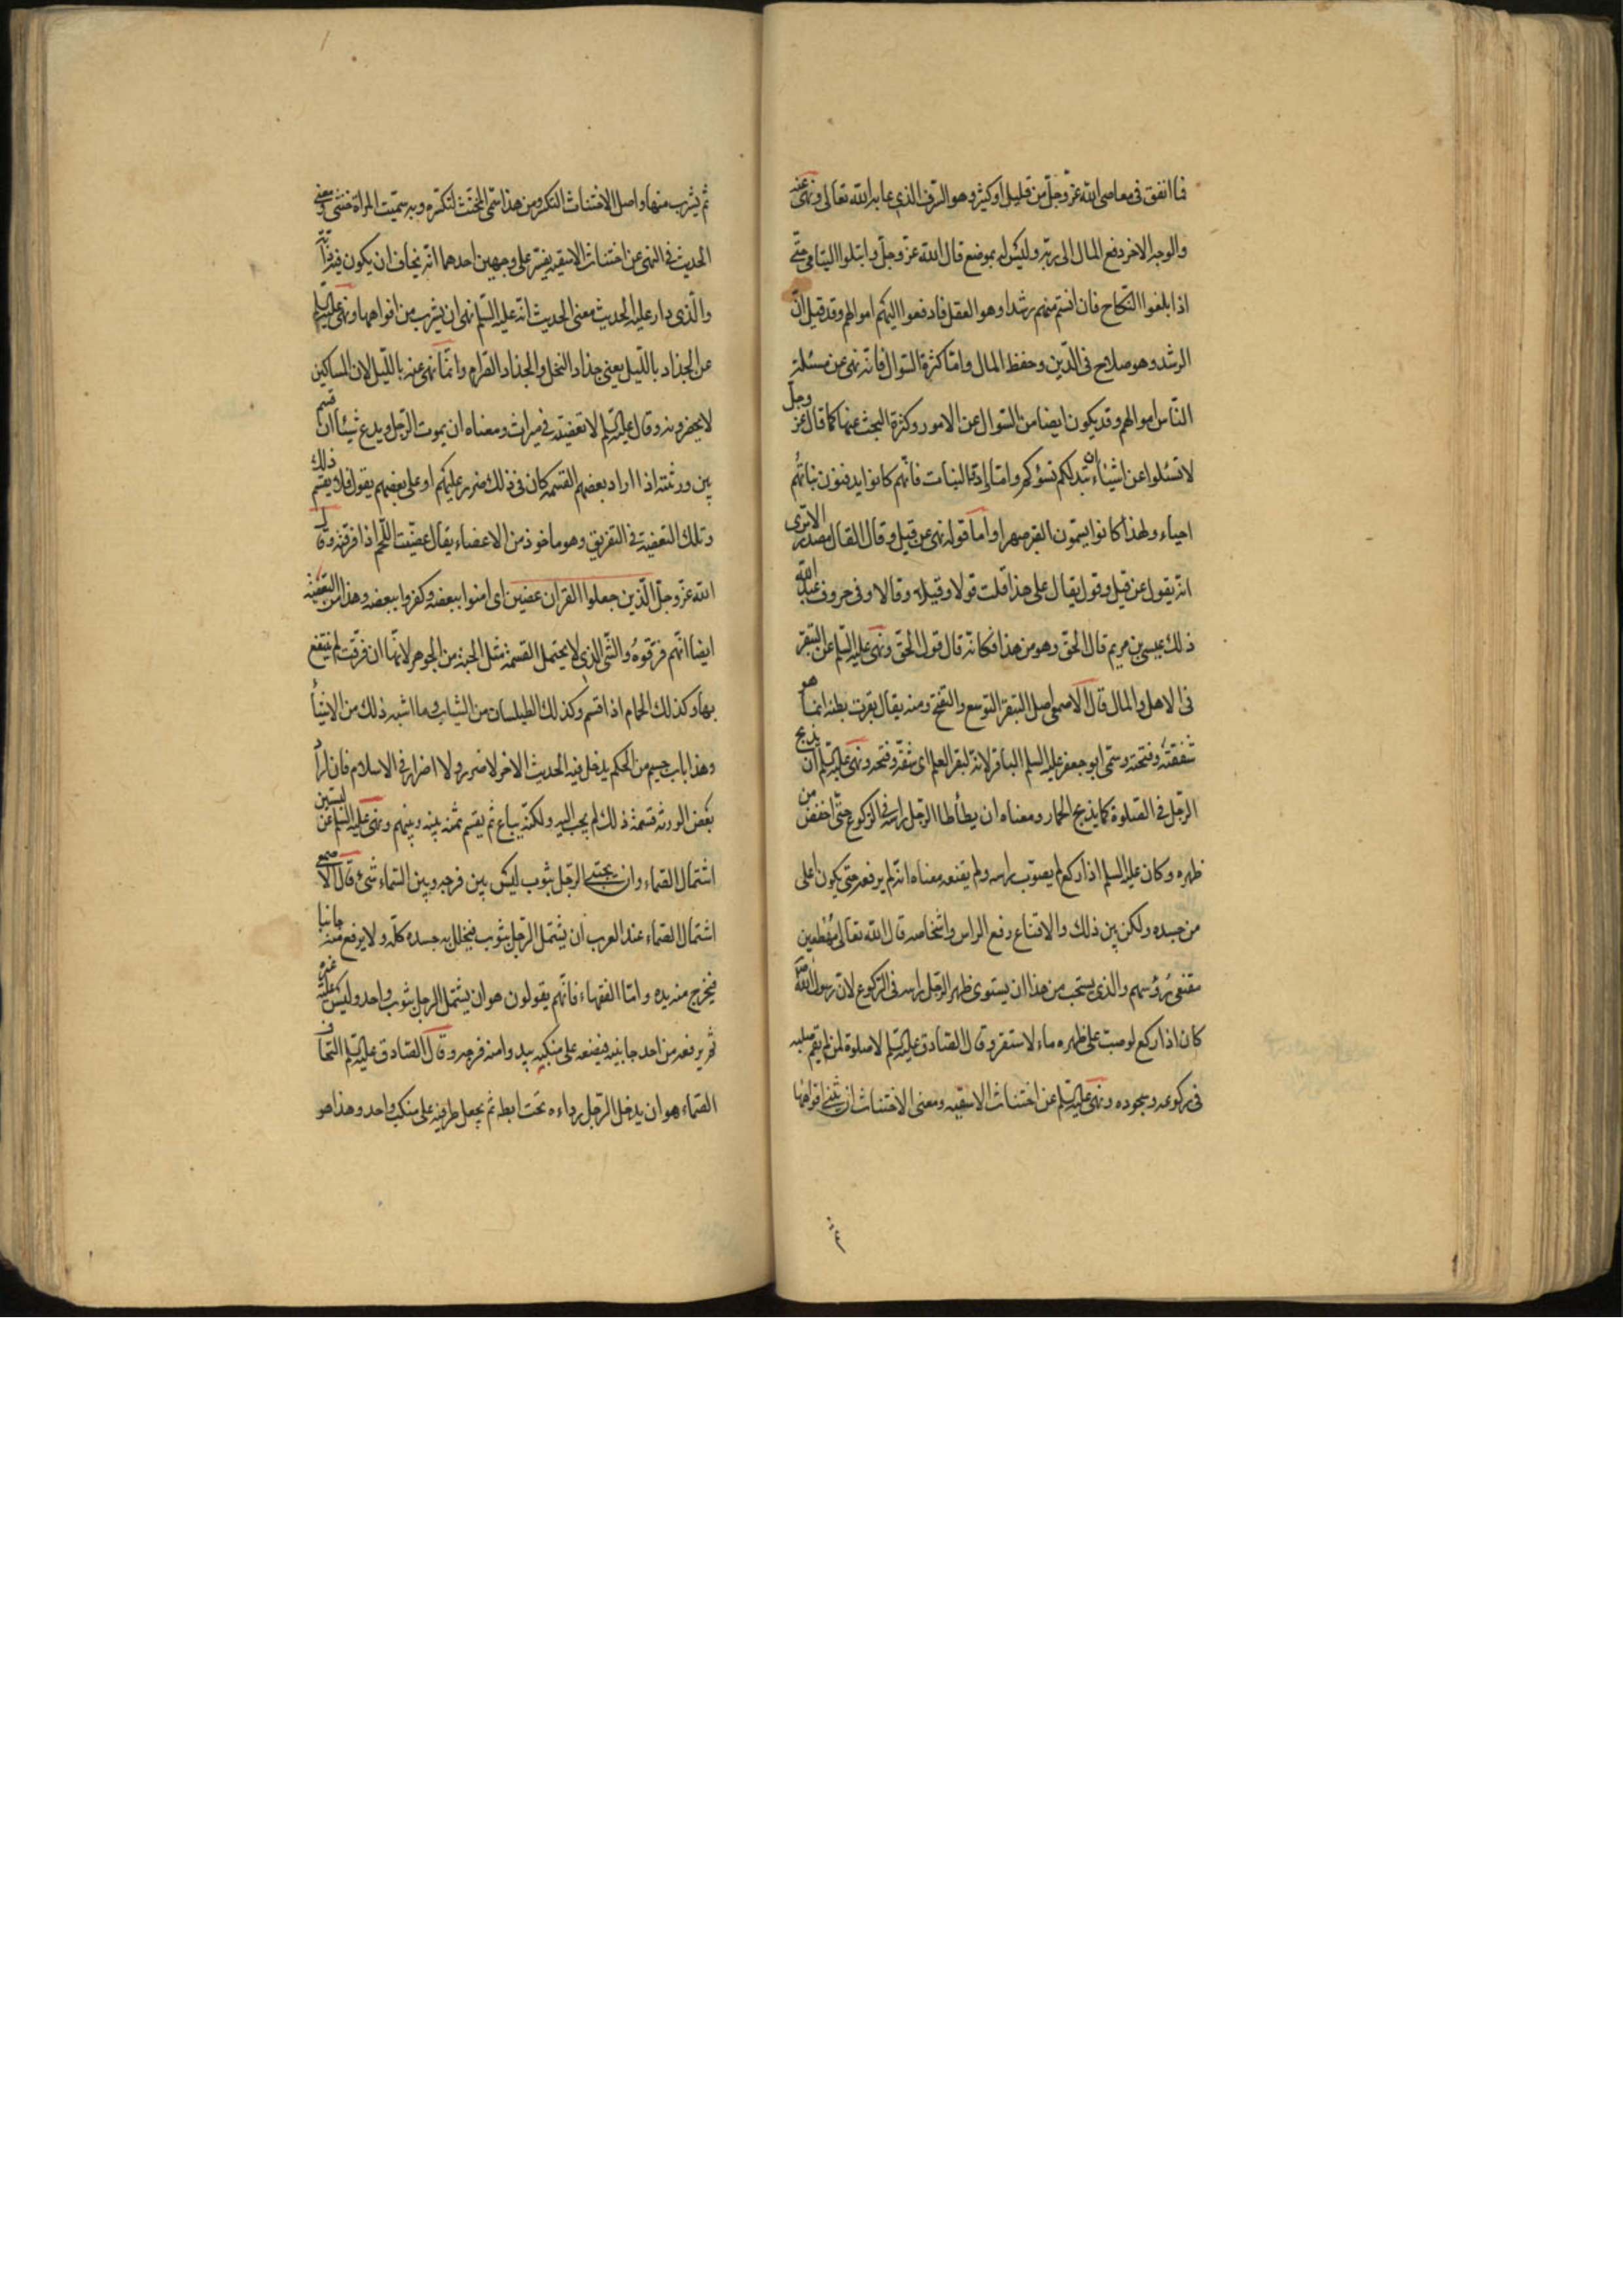 فما انفق فى معاصى الله عز وجل من قليل او كثير وهو السرف الذى عابه الله تعالى ونهى عنه
والوجه الاخر دفع المال الى ربه وليس له بموضع قال الله عز وجل وابتلوا اليتامى حتى
اذا بلغوا النكاح فان انستم منهم رشدا وهو العقل فادفعوا اليهم اموالهم وقد قيل ان
الرشد وهو صلاح فى الدين وحفظ المال واما كثرة السوال فانه نهى عن مسئلة
الناس اموالهم وقد يكون ايضا من السوال عن الامور وكثرة البحث عنها كما قال عز وجل
لا تسئلوا عن اشياء ان تبد لكم تسؤكم واما واد البنات فانهم كانوا يدفنون بناتهم
احياء ولهذا كانوا يسمون القبر صهرا واما قوله نهى عن قيل وقال القال مصدر الا ترى
انه يقول عن قيل وقول يقال على هذا قلت قولا وقيلا وقالا وفى حروف عبد الله
ذلك عيسى بن مريم قال الحق وهو من هذا فكانه قال قول الحق ونهى عليه السلم عن التبقر
فى الاهل والمال قال الاصمعى اصل التبقر التوسع والتفتح ومنه يقال بقرت بطنه انما هو
شققته وفتحته وسمى ابو جعفر عليه السلم الباقر لانه بقر العلم اى شقه وفتحه ونهى عليه السلم ان يذبح
الرجل فى الصلوة كما يذبح الحمار ومعناه ان يطأطا الرجل راسه فى الركوع حتى اخفض من
ظهره وكان عليه السلم اذا ركع لم يصوب راسه ولم يقنعه معناه انه لم يرفعه حتى يكون اعلى
من جسده ولكن بين ذلك والاقناع رفع الراس واشخاصه قال الله تعالى مهطعين
مقنعى رؤسهم والذى يستحب من هذا ان يستوى ظهر الرجل وراسه فى الركوع لان رسول الله
كان اذا ركع لو صب على ظهره ماء لاستقر وقال الصادق عليه السلم لا صلوة لمن لم يقم صلبه
فى ركوعه وسجوده ونهى عليه السلم عن اختناث الاسقيه ومعنى الاختناث ان يثنى افواهها
ثم يشرب منها واصل الاختناث التكسر ومن هذا سمى المخنث لتكسره وبه سميت المراة خنثى ومعنى
الحديث فى النهى عن اختناث الاسقيه يفسر على وجهين احدهما انه يخاف ان يكون فيه دابة
والذى دار عليه الحديث معنى الحديث انه عليه السلم نهى ان يشرب من افواهها ونهى عليه السلم
عن الجذاذ بالليل يعنى جذاذ النخل والجذاذ الصرام وانما نهى عنه بالليل لان المساكين
لا يحضرونه وقال عليه السلم لا تعضية فى ميراث ومعناه ان يموت الرجل ويدع شيئا ان قسم
بين ورثته اذا اراد بعضهم القسمة كان فى ذلك ضرر عليهم او على بعضهم يقول فلا يقسم ذلك
وتلك التعضية فى التفريق وهو ماخوذ من الاعضاء يقال عضيت اللحم اذا فرقته وقال
الله عز وجل الذين جعلوا القران عضين اى امنوا ببعضه وكفروا ببعضه وهذا من التعضية
ايضا انهم فرقوه والشى الذى لا يحتمل القسمة مثل الحبة من الجوهر لانها ان فرقت لم ينتفع
بها وكذلك الحمام اذا قسم وكذلك الطيلسان من الثياب وما اشبه ذلك من الاشياء
وهذا باب جسيم من الحكم يدخل فيه الحديث الاخر لا ضرر ولا اضرار فى الاسلام فان اراد
بعض الورثه قسمة ذلك لم يجب اليه ولكنه يباع ثم يقسم ثمنه بينه وبينهم ونهى عليه السلم عن لبستين
اشتمال الصماء وان يحتبى الرجل بثوب ليس بين فرجه وبين السماء شئ قال الاصمعى
اشتمال الصماء عند العرب ان يشتمل الرجل بثوب فيجلل به جسده كله ولا يرفع منه جانبا
فيخرج منه يده واما الفقهاء فانهم يقولون هو ان يشتمل الرجل بثوب واحد وليس عليه غيره
ثم يرفعه من احد جانبيه فيضعه على منكبيه يبدوا منه فرجه وقال الصادق عليه السلم التحاف
الصماء هو ان يدخل الرجل رداءه تحت ابطه ثم يجعل طرفيه على منكب واحد وهذا هو